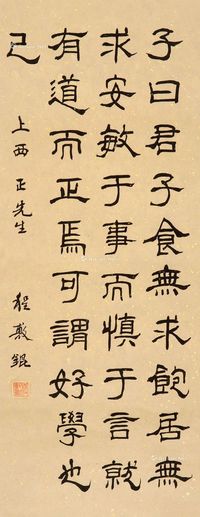 子曰君子食無求飽居無
求安敏于事而慎于言就
有道而正焉可謂好學也
已
上西 正先生
程 錕